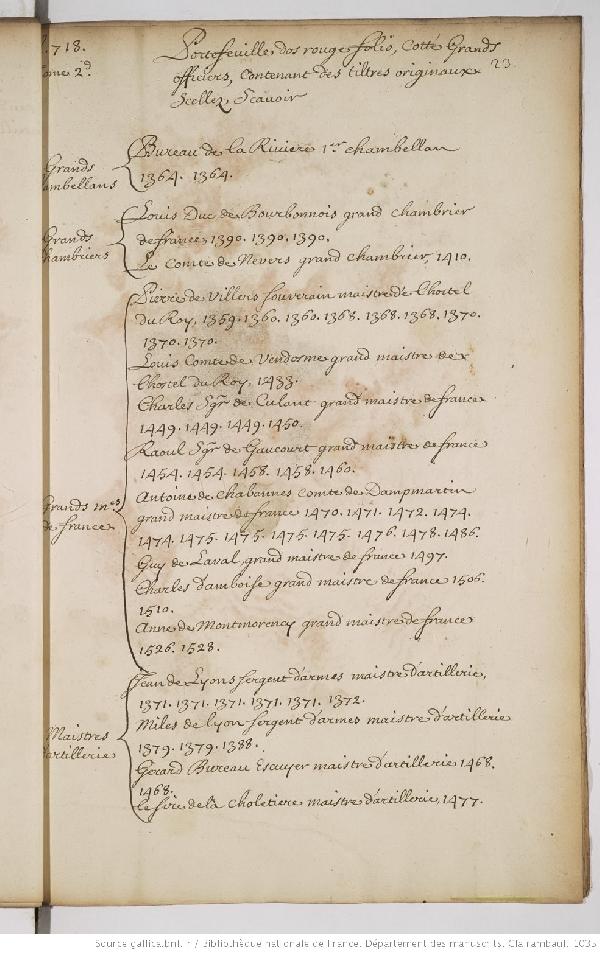 718.
ome 2d.
Portefeuille dos rouge folio, Cotté Grands
officiers, Contenant des tiltres originaux
Scellez, Scavoir
23
Grands
ambellans
Bureau de la Riviere 1er chambellan
1364. 1364.
Grands
hambriers
Louis Duc de Bourbonnois grand chambrier
de france, 1390. 1390. 1390.
Le Comte de Nevers grand chambrier, 1410.
Grands mes
de france
Pierre de Villers souverain maistre de l'hostel
du Roy, 1359. 1360. 1360. 1368. 1368. 1368. 1370.
1370. 1370.
Louis Comte de Vendosme grand maistre de
l'hostel du Roy, 1433.
Charles Sgr de Culant grand maistre de france
1449. 1449. 1449. 1450.
Raoul Sgr de Gaucourt grand maistre de france
1454. 1454. 1458. 1458. 1460.
Antoine de Chabannes Comte de Dampmartin
grand maistre de france 1470. 1471. 1472. 1474.
1474. 1475. 1475. 1475. 1475. 1476. 1478. 1486.
Guy de Laval grand maistre de france 1497.
Charles d'amboise grand maistre de france 1506.
1510.
Anne de Montmorency grand maistre de france
1526. 1528.
Maistres
artillerie
Jean de Lyons sergent d'armes maistre d'artillerie,
1371. 1371. 1371. 1371. 1371. 1372.
Miles de lyon sergent d'armes maistre d'artillerie
1379. 1379. 1388.
Gerard Bureau Escuyer maistre d'artillerie 1468.
1468.
Le sire de la Choletiere maistre d'artillerie, 1477.
Source gallica.bnf.fr / Bibliothèque nationale de France. Département des manuscrits. Clairambault 1035